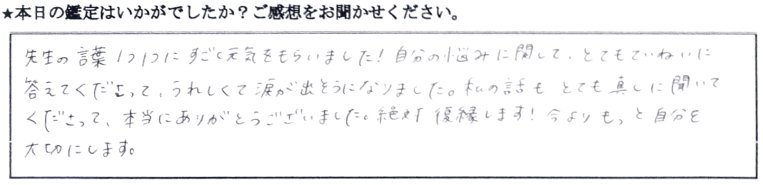 ★本日の鑑定はいかがでしたか？ご感想をお聞かせください。
先生の言葉1つ1つにすごく元気をもらいました！自分の悩みに関して、とてもていねいに
答えてくださって、うれしくて涙が出そうになりました。私の話もとても真しに聞いて
くださって、本当にありがとうございました。絶対復縁します！今よりもっと自分を
大切にします。